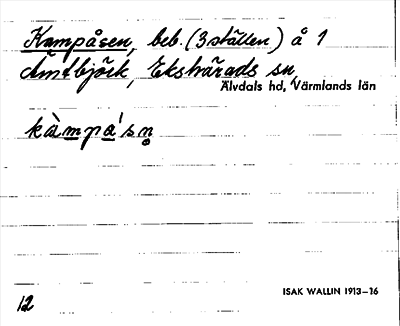 Kampåsen, beb. (3 ställen) å 1
Ämtbjörk, Ekshärads sn,
Älvdals hd, Värmlands län
kàmpa'sn̥
ISAK WALLIN 1913–16
12